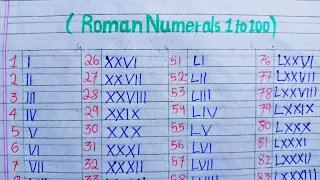 ( Roman Numerals 1 to 100)
1 I 26 XXVI 51 LI 76 LXXVI
2 II 27 XXVII 52 LII 77 LXXVII
3 III 28 XXVIII 53 LIII 78 LXXVIII
4 IV 29 XXIX 54 LIV 79 LXXIX
5 V 30 XXX 55 LV 80 LXXX
6 VI 31 XXXI 56 LVI 81 LXXXI
7 VII 32 XXXII 57 LVII 82 LXXXII
33 58 LVIII 83 LXXXIII